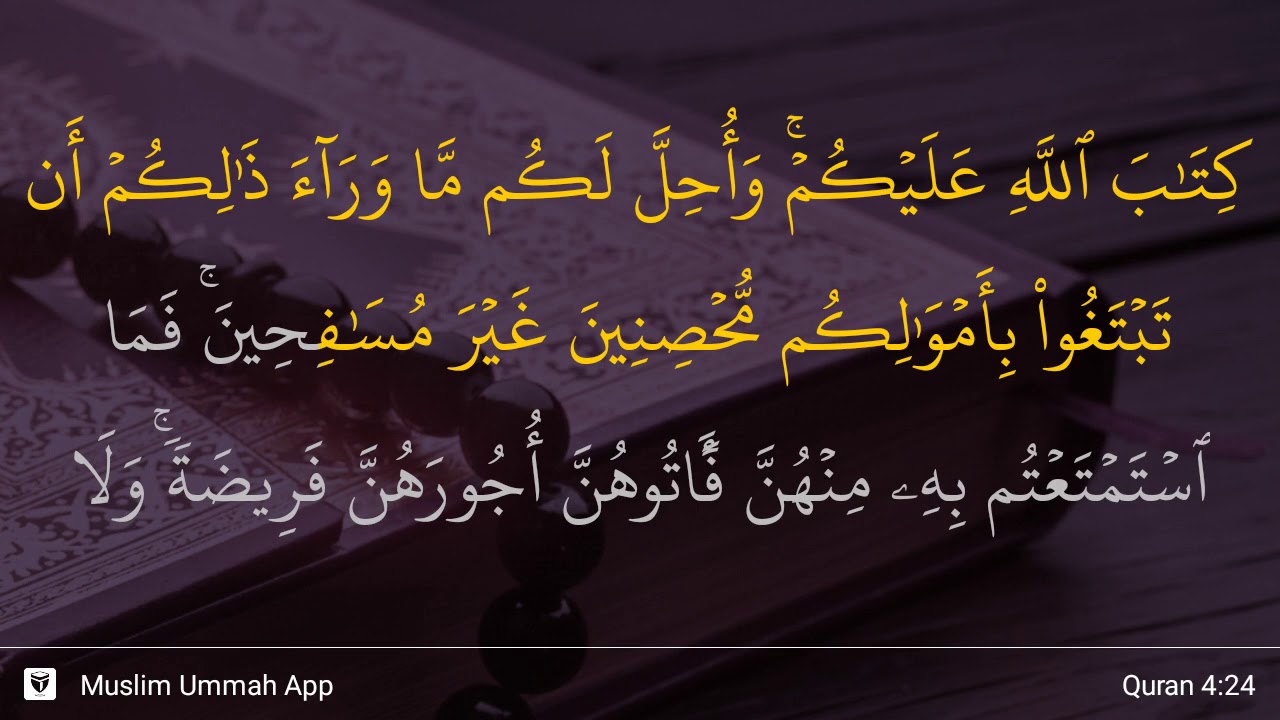 كِتَـٰبَ ٱللَّهِ عَلَيۡكُمۡۚ وَأُحِلَّ لَكُم مَّا وَرَآءَ ذَٰلِكُمۡ أَن
تَبۡتَغُواْ بِأَمۡوَٰلِكُم مُّحۡصِنِينَ غَيۡرَ مُسَٰفِحِينَۚ فَمَا
ٱسۡتَمۡتَعۡتُم بِهِۦ مِنۡهُنَّ فَـَٔاتُوهُنَّ أُجُورَهُنَّ فَرِيضَةٗۚ وَلَا
Muslim Ummah App
Quran 4:24